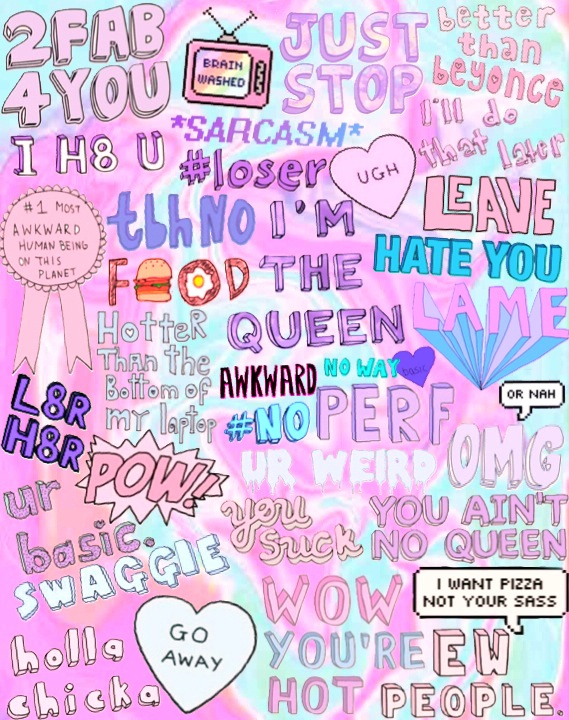 2FAB
4YOU
BRAIN
WASHED
JUST
STOP
better
than
beyonce
*SARCASM*
I'll do
that later
I H8 U
#loser
UGH
LEAVE
#1 MOST
AWKWARD
HUMAN BEING
ON THIS
PLANET
tbh NO
I'M
THE
QUEEN
HATE YOU
FOOD
LAME
HOTTER
THAN the
BOTTOM OF
my laptop
AWKWARD
NO WAY
basic
L8R
H8R
#NO
PERF
OR NAH
OMG
POW!!
UR WEIRD
ur
basic.
you
suck
YOU AIN'T
NO QUEEN
SWAGGIE
WOW
YOU'RE
HOT
I WANT PIZZA
NOT YOUR SASS
GO
AWAY
EW
PEOPLE.
holla
chicka